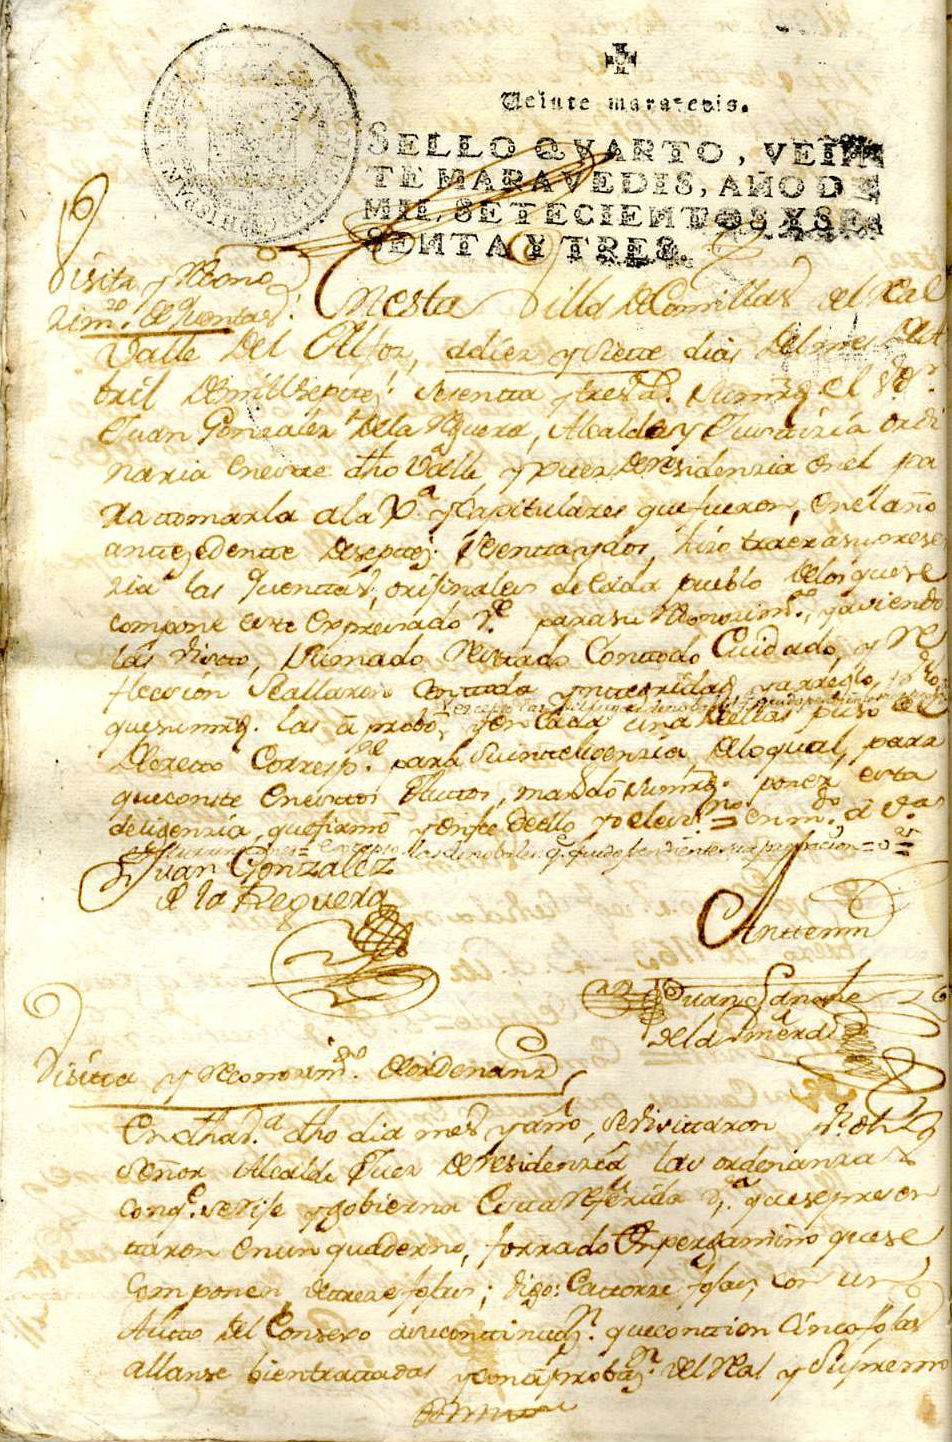 Veinte maravedis.
SELLO QVARTO, VEIN
TE MARAVEDIS, AÑO DE
MIL SETECIENTOS Y SE
SENTA Y TRES.
Visita y Recono
zim.to de Quentas
En esta Villa de Comillas del Real
Valle del Alfoz, a diez y siete dias del mes de Ab
ril de mill septez.s sesenta y tres a.s Su mrd el S.r D.n
Juan Gonzalez de la Reguera, Alcalde y Justizia ordi
naria en este dho Valle, y Juez de residenzia en el pa
ra tomarla a la V.a y Capitulares que fueron, en el año
antezedente de septez.s sesenta y dos, hizo traer a su prese
zia las Quentas, orijinales de cada pueblo de los que se
compone este expresado V.e para su Reconozim.to, y aviendo
las visto, sumado restado Con todo Cuidado, y Re
flección se allaron Con toda yntegridad y arreglo,
que su mrd. las aprobó, y en cada una de ellas puso el
Decreto Corresp.te para su intelijenzia, de lo qual, para
que conste en estos Autos, mandó su mrd. poner esta
delijenzia, que firmó y en fee de ello yo el ess.no = en m.do
Juan Gonzalez
de la Reguera
Antemi
Juan Sanchez
de la
Visita y Reconozim.to de ordenanz.s
En dha V.a dho dia mes y año, se visitaron p.r dho
Señor Alcalde Juez de residenzia las ordenanzas
con q.e se rije y gobierna esta referida V.a que se presen
taron en un quaderno, forrado en pergamino que se
componen de treze foltas; digo: Catorze foltas, con un
Auto del Consejo a su continuaz.n que contien Cinco foltas
allanse bien tratadas y con aprobaz.n del Real y Supremo